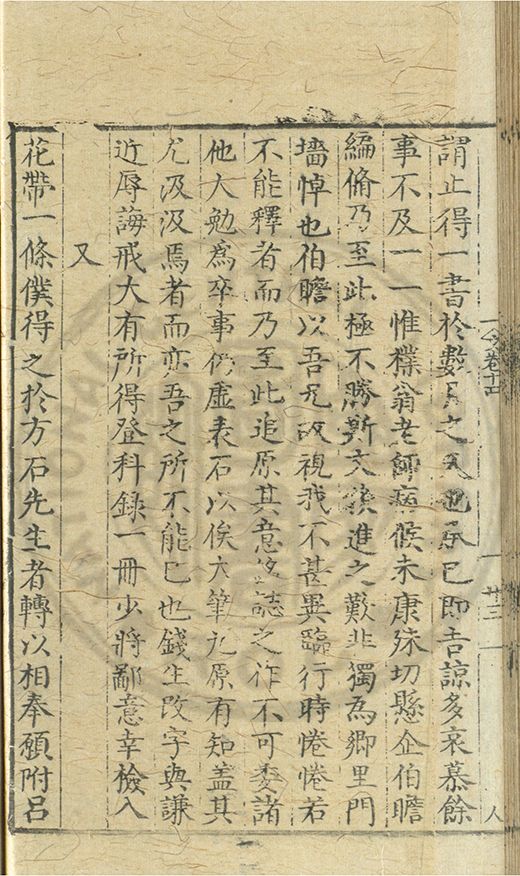 謂止得一書於數月之久也承已即吉諒多哀慕餘
事不及一一惟櫟翁老師病候未康殊切懸企伯瞻
編脩乃至此極不勝斯文後進之歎非獨為鄉里門
墻悼也伯瞻以吾兄故視我不甚異臨行時惓惓若
不能釋者而乃至此追原其意志之作不可委諸
他大勉為卒事仍虛表石以俟大筆九原有知盖其
尤汲汲焉者而亦吾之所不能已也錢生改字與謙
近辱誨戒大有所得登科錄一冊少將鄙意幸檢入
又
花帶一條僕得之於方石先生者轉以相奉願附呂
卷十四
廿三
人